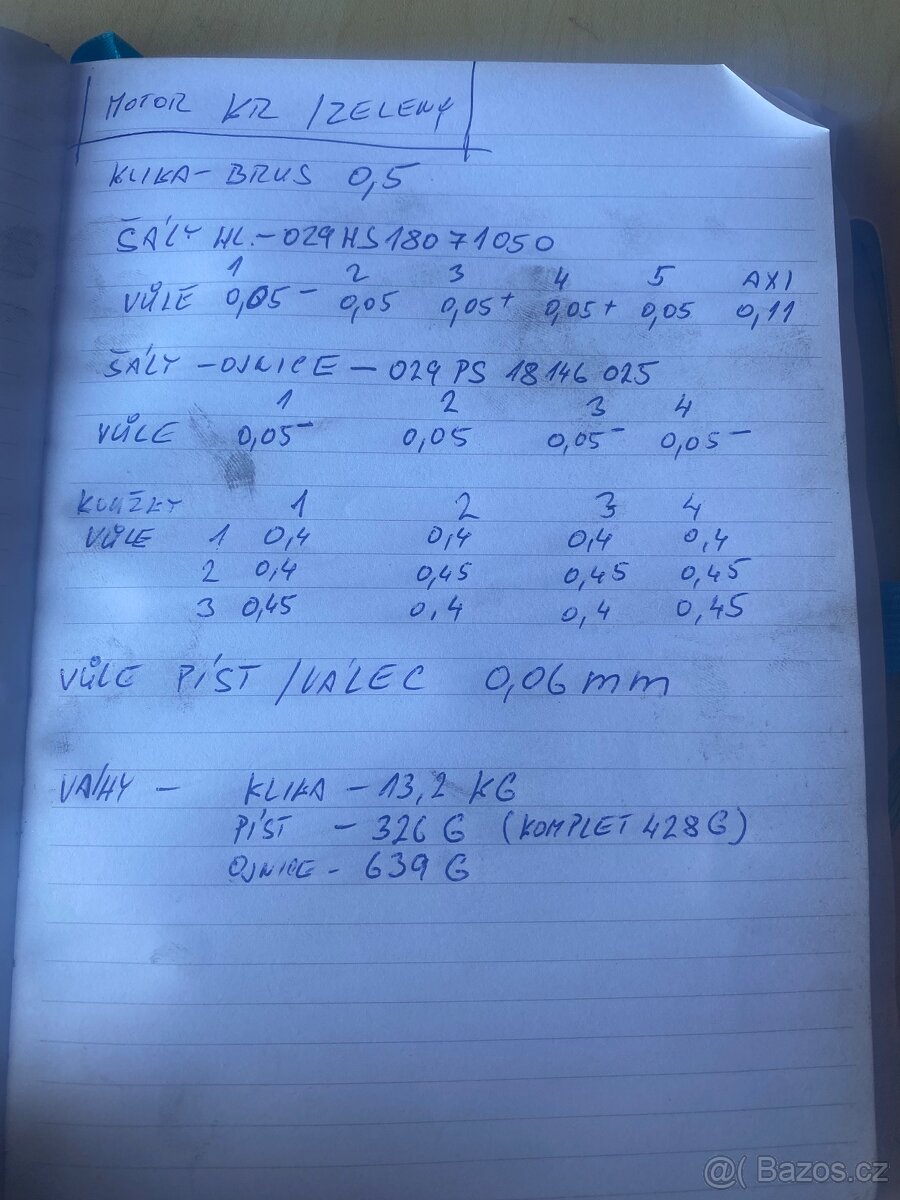 MOTOR KR /ZELENY
KLIKA - BRUS 0,5
ŠÁLY HL. - 029HS18071050
1 2 3 4 5 AXI
VŮLE 0,05- 0,05 0,05+ 0,05+ 0,05 0,11
ŠÁLY - OJNICE - 029 PS 18146 025
1 2 3 4
VŮLE 0,05- 0,05 0,05- 0,05-
KROUŽKY 1 2 3 4
VŮLE 1 0,4 0,4 0,4 0,4
2 0,4 0,45 0,45 0,45
3 0,45 0,4 0,4 0,45
VŮLE PÍST /VÁLEC 0,06 mm
VÁHY - KLIKA - 13,2 KG
PÍST - 326 G (KOMPLET 428G)
OJNICE - 639 G
@( Bazos.cz